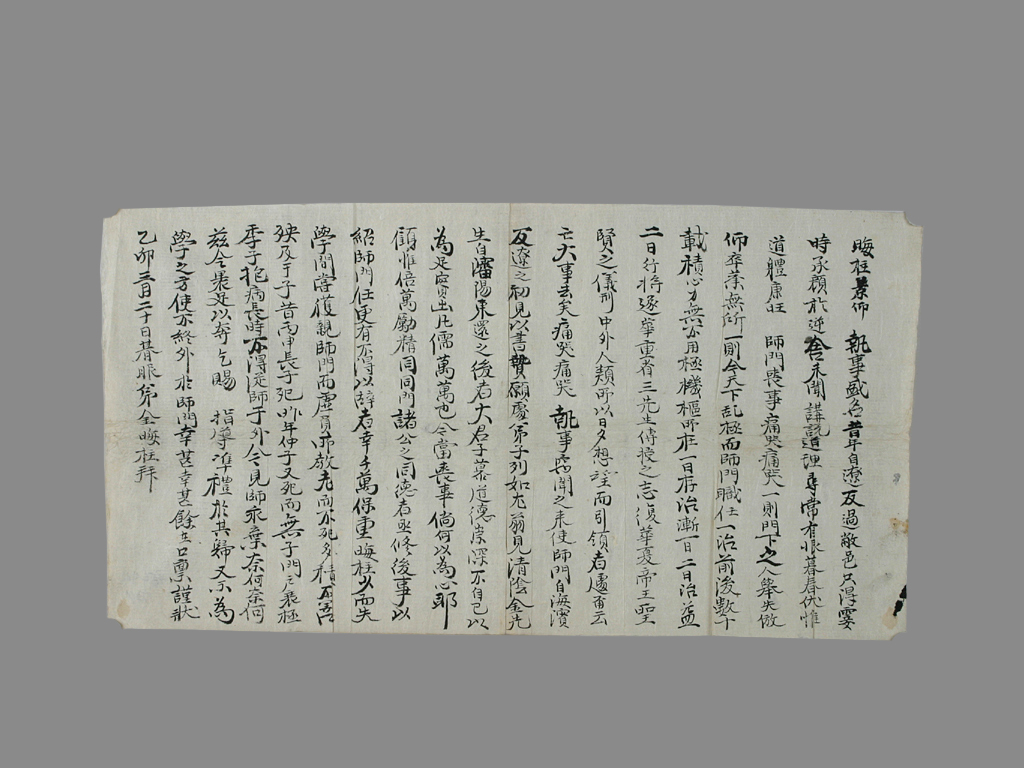 晦柱景仰 執事盛名昔年自遼反過敝邑只得霎
時承顔於逆舍未聞講說道理尋常有恨暮春伏惟
道體康旺 師門喪事痛哭痛哭一則門下之人舉失倣
仰卒業無所一則今天下乱極而師門職任一治前後數千
載積心力無公用極機樞所在一日存治漸一日二日治益
二日行將逐華重省三先生傳授之志復華夏帝王聖
賢之儀刑中外人類所以日夕想望而引領者遽爾云
亡大事去矣痛哭痛哭 執事聞之未使師門自海濱
反遼之初見以書贄願處弟子列如尤翁見清陰金先
生自瀋陽東還之後者大君子慕道德崇深不自已以
為足實出凡儒萬萬也今當喪事倘何以為心耶
願惟倍萬勵精同同門諸公之同德者亟修後事以
紹師門任更有不得以辞者幸千萬保重晦柱少而失
學問嘗獲親師門而虛員弟教老而不死多積不善
殃及于子昔丙申長子死昨年仲子又死而無子門户衰極
季子抱病長時亦得從師于外今見師永棄奈何奈何
茲令衰足以奔乞賜 指導準禮於其歸又示為
學之方使不終外於師門幸甚幸甚餘在口稟謹狀
乙卯三月二十日朞服弟金晦柱拜